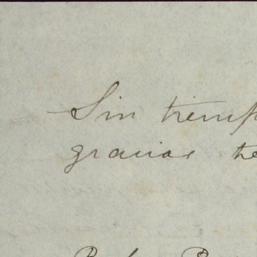 Sin tiemp
gracias te